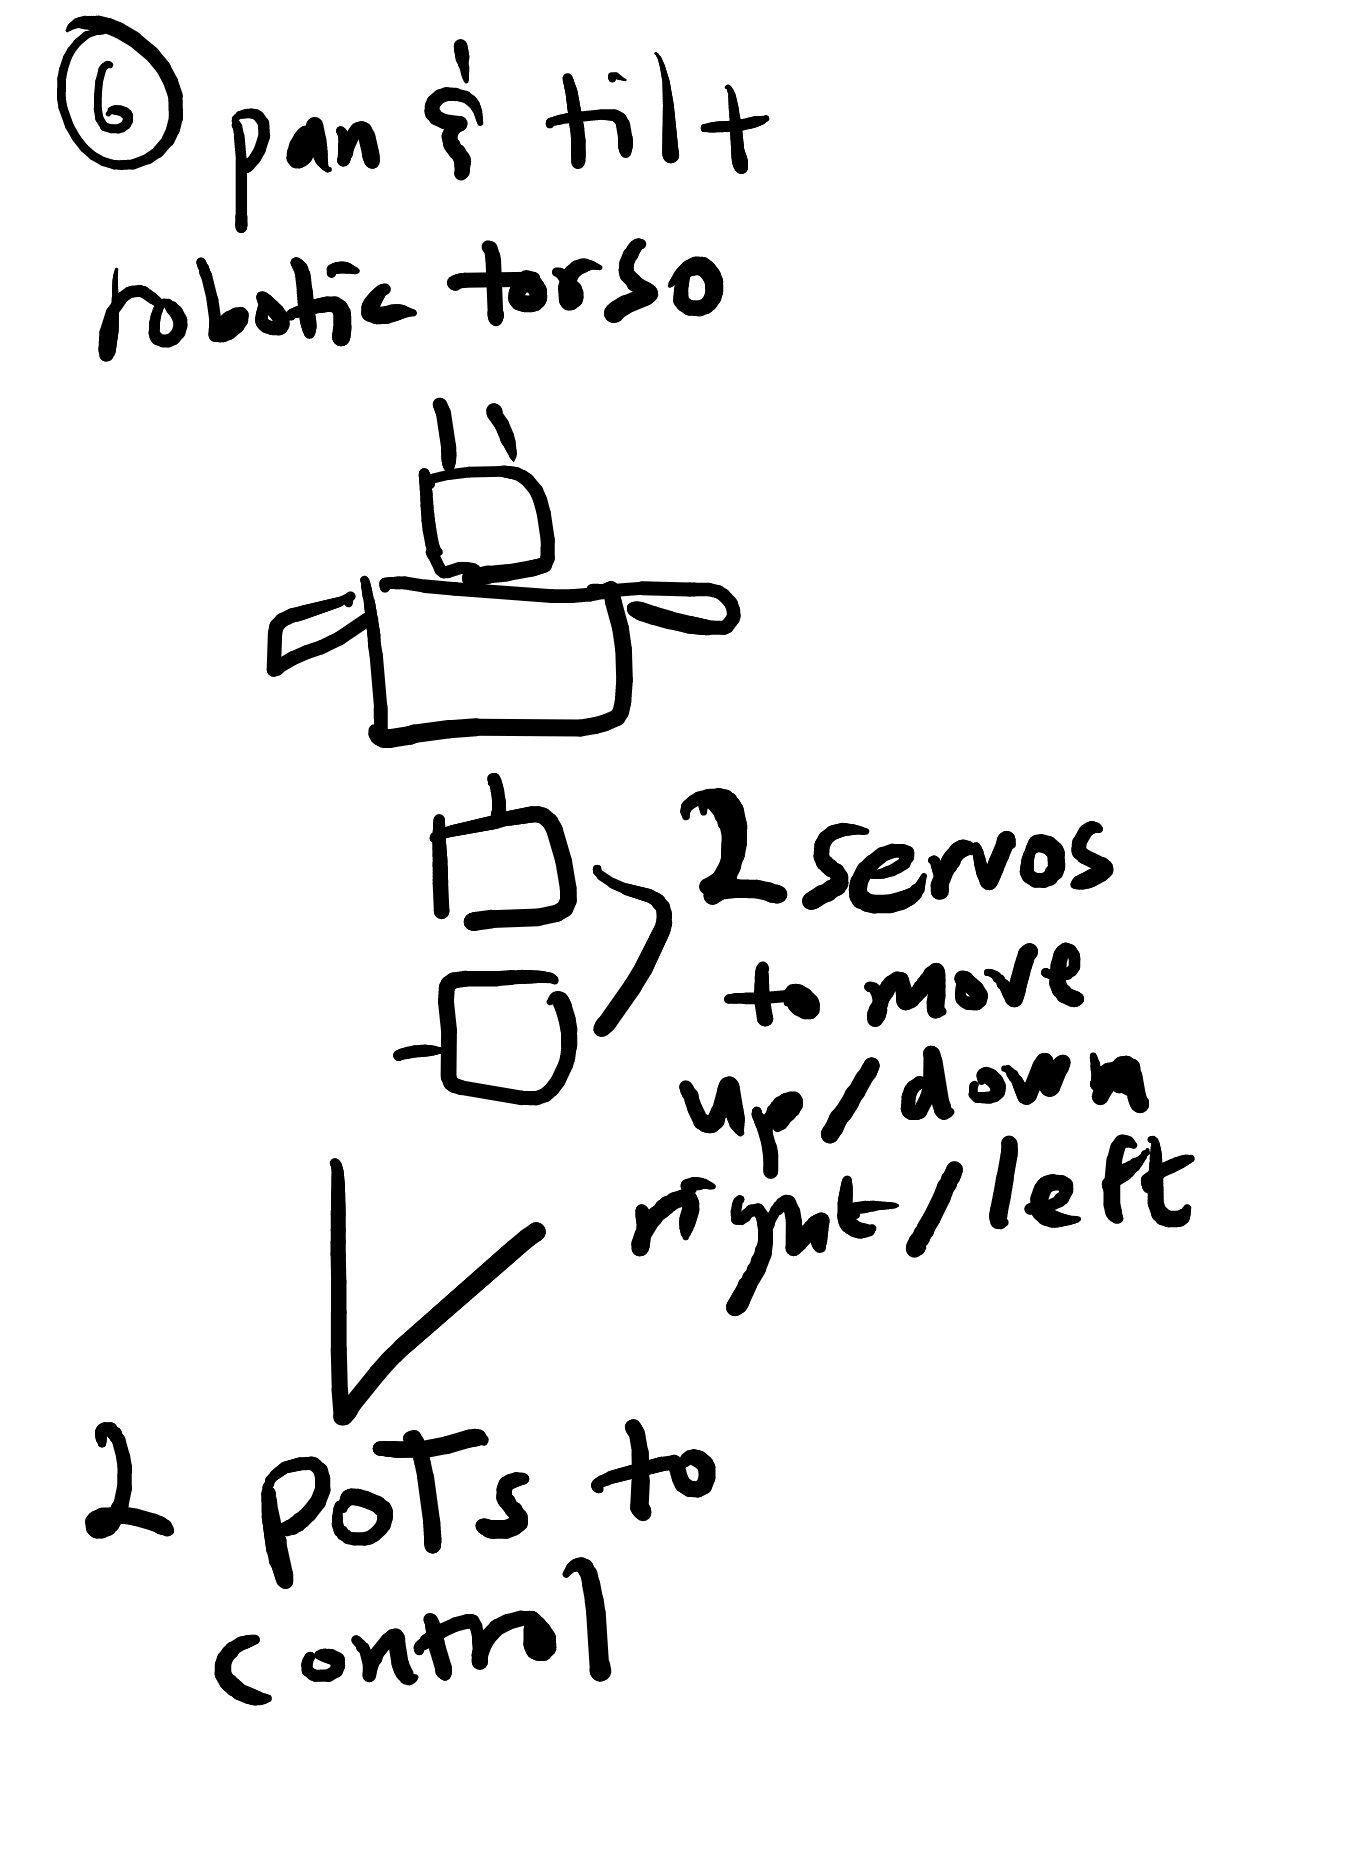 6 pan & tilt
robotic torso
2 servos
to move
up/down
right/left
2 POTs to
control